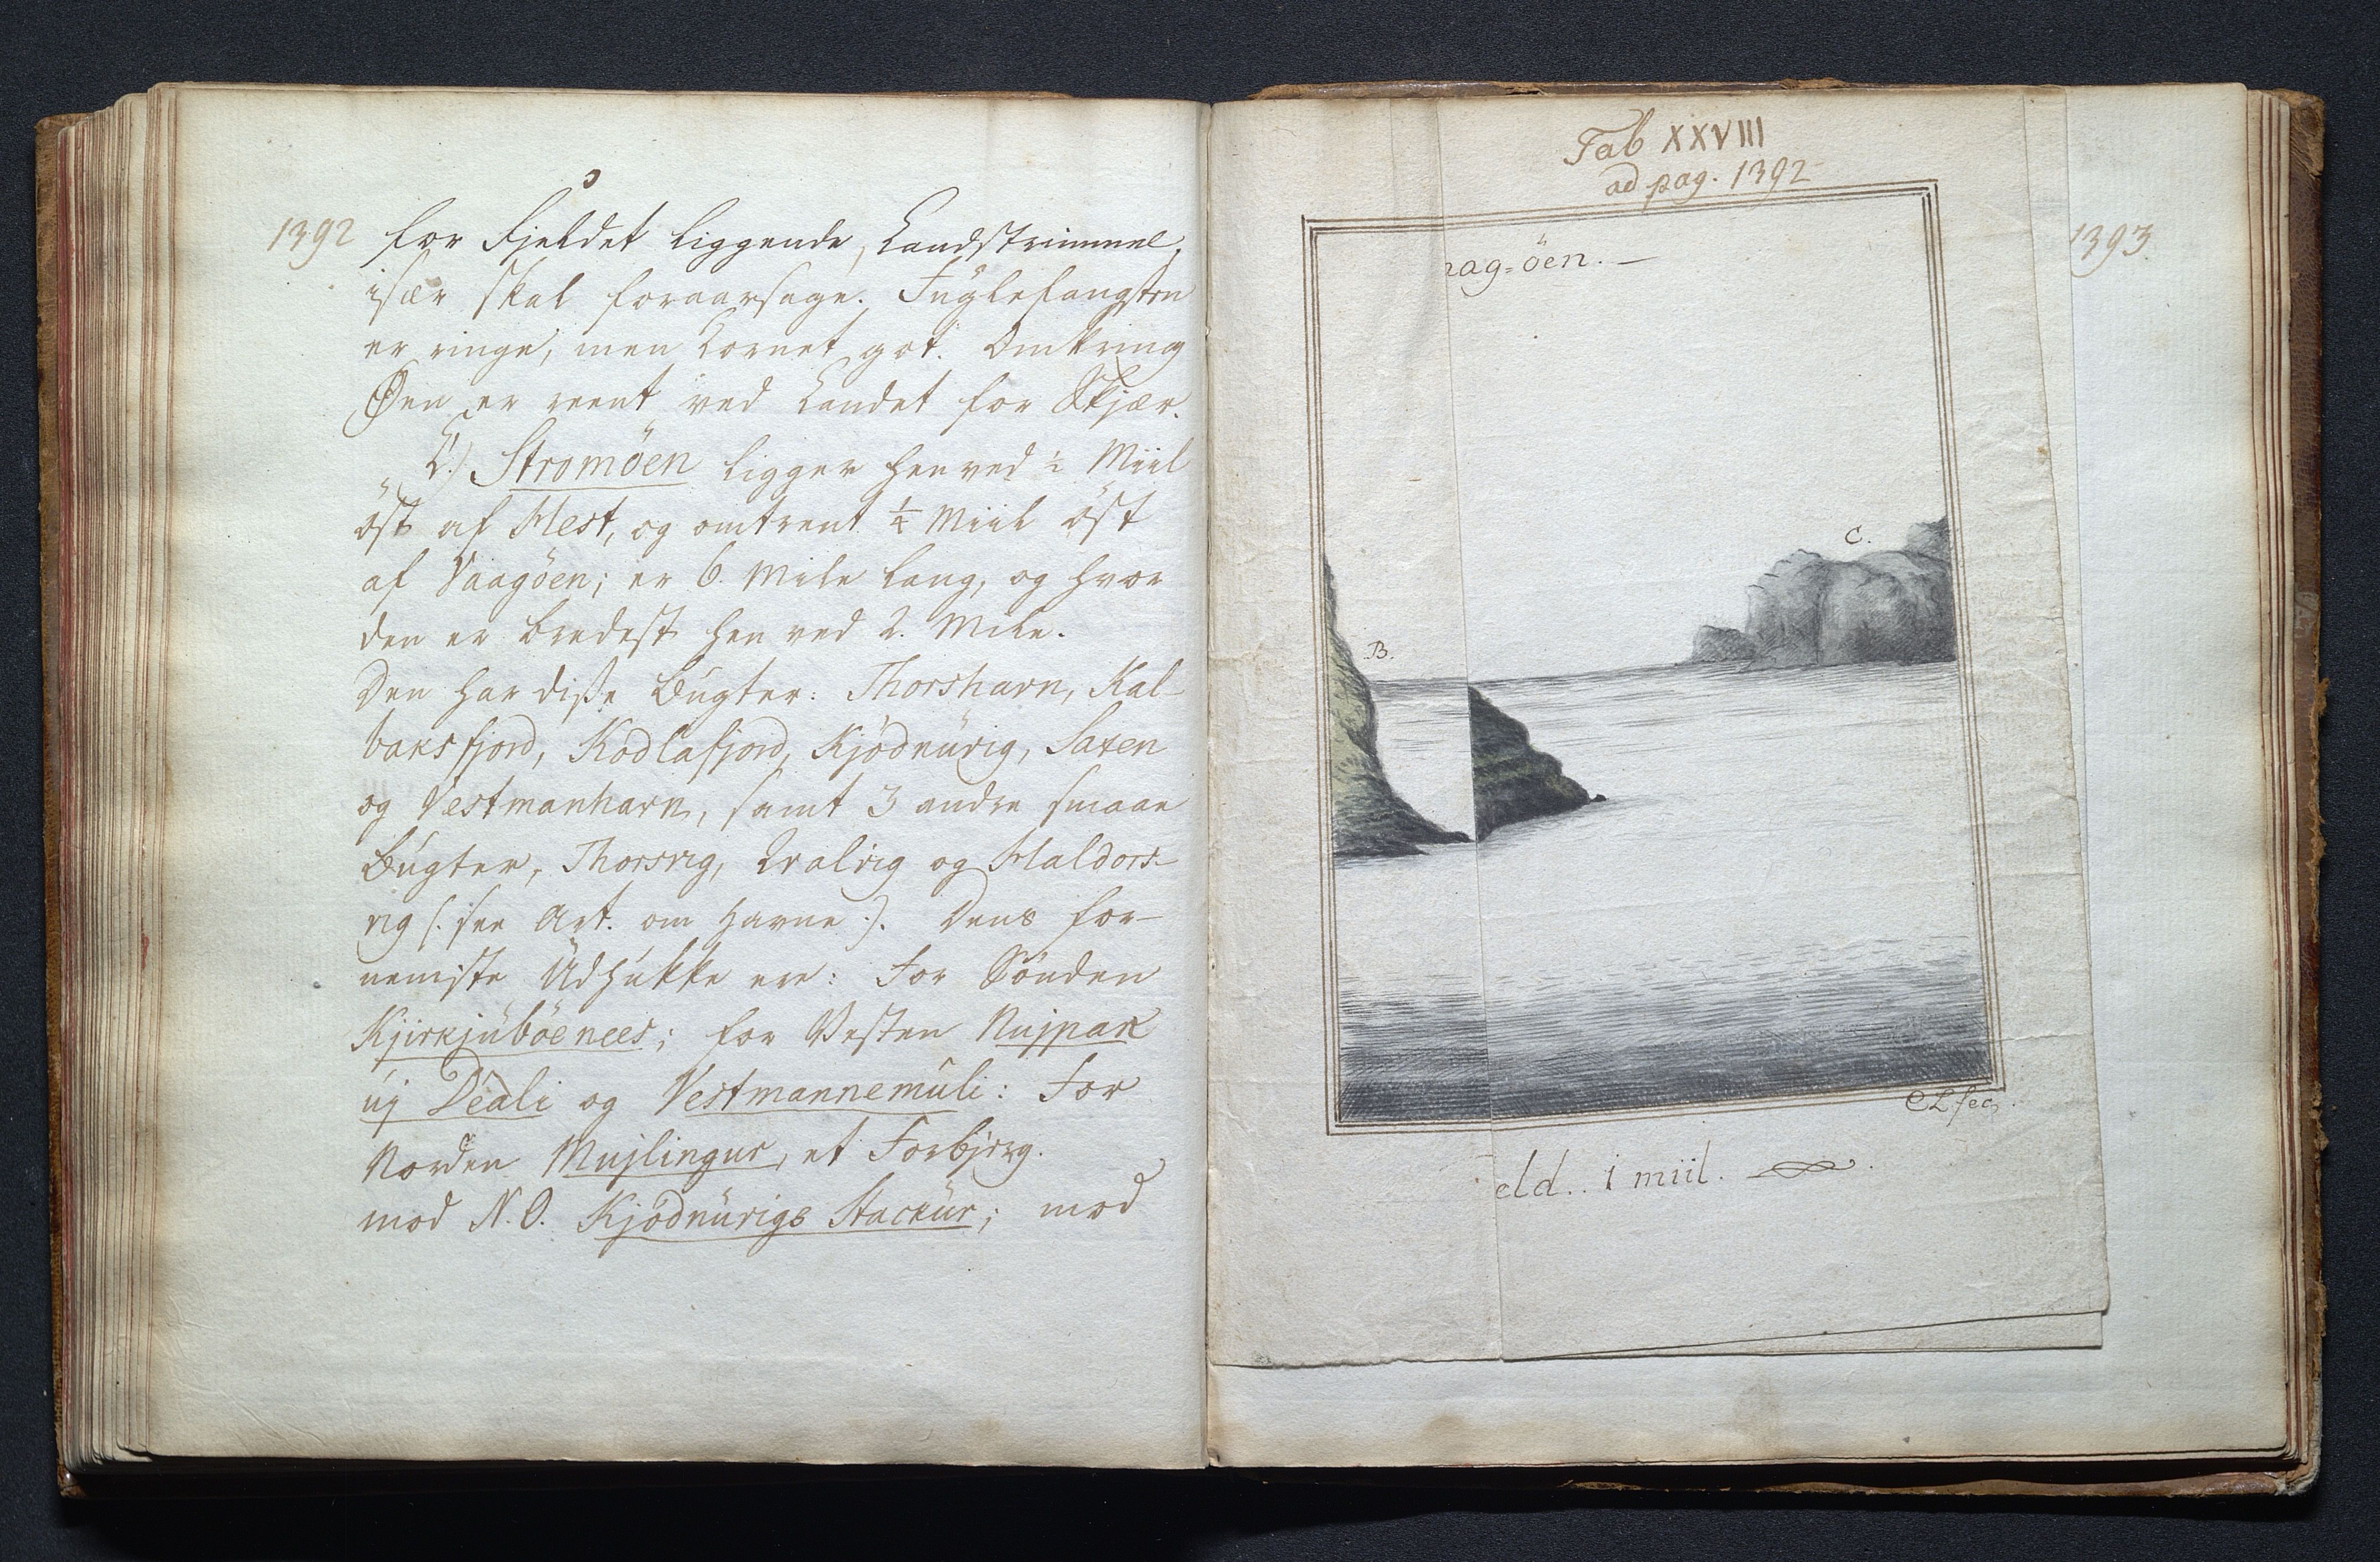 1392 for Fjeldet liggende Landstrimmel,
især skal foraarsage. Fúglefangsten
er ringe, men Kornet got. Omkring
Øen er reent ved Landet for Skjær.
Strömöen ligger henved ½ Miil
öst af Hest, og omtrent ¼ Miil öst
af Vaagöen; er 6. Mile lang, og hvor
den er bredest henved 2. Mile.
Den har diße Búgter: Thorshavn, Kal-
baksfjord, Kodlafjord, Kjódnúvig, Saxen
og Vestmanhavn, samt 3 andre smaae
Búgter, Thorsvig, Qvalvig og Haldors-
vig (: see Art. om Havne :). Dens for-
nemste Údhúkke ere: For Sönden
Kjirkjúböenees; for Vesten Nujpan
uj Deali og Vestmannemúli: For
Norden Mujlingur, et Forbjerg.
mod N. O. Kjódnúvigs Stackúr; mod
Tab XXVIII
ad pag. 1392
1393.
aag-öen. —
C.
B.
CL fec.
eld.. 1 miil.